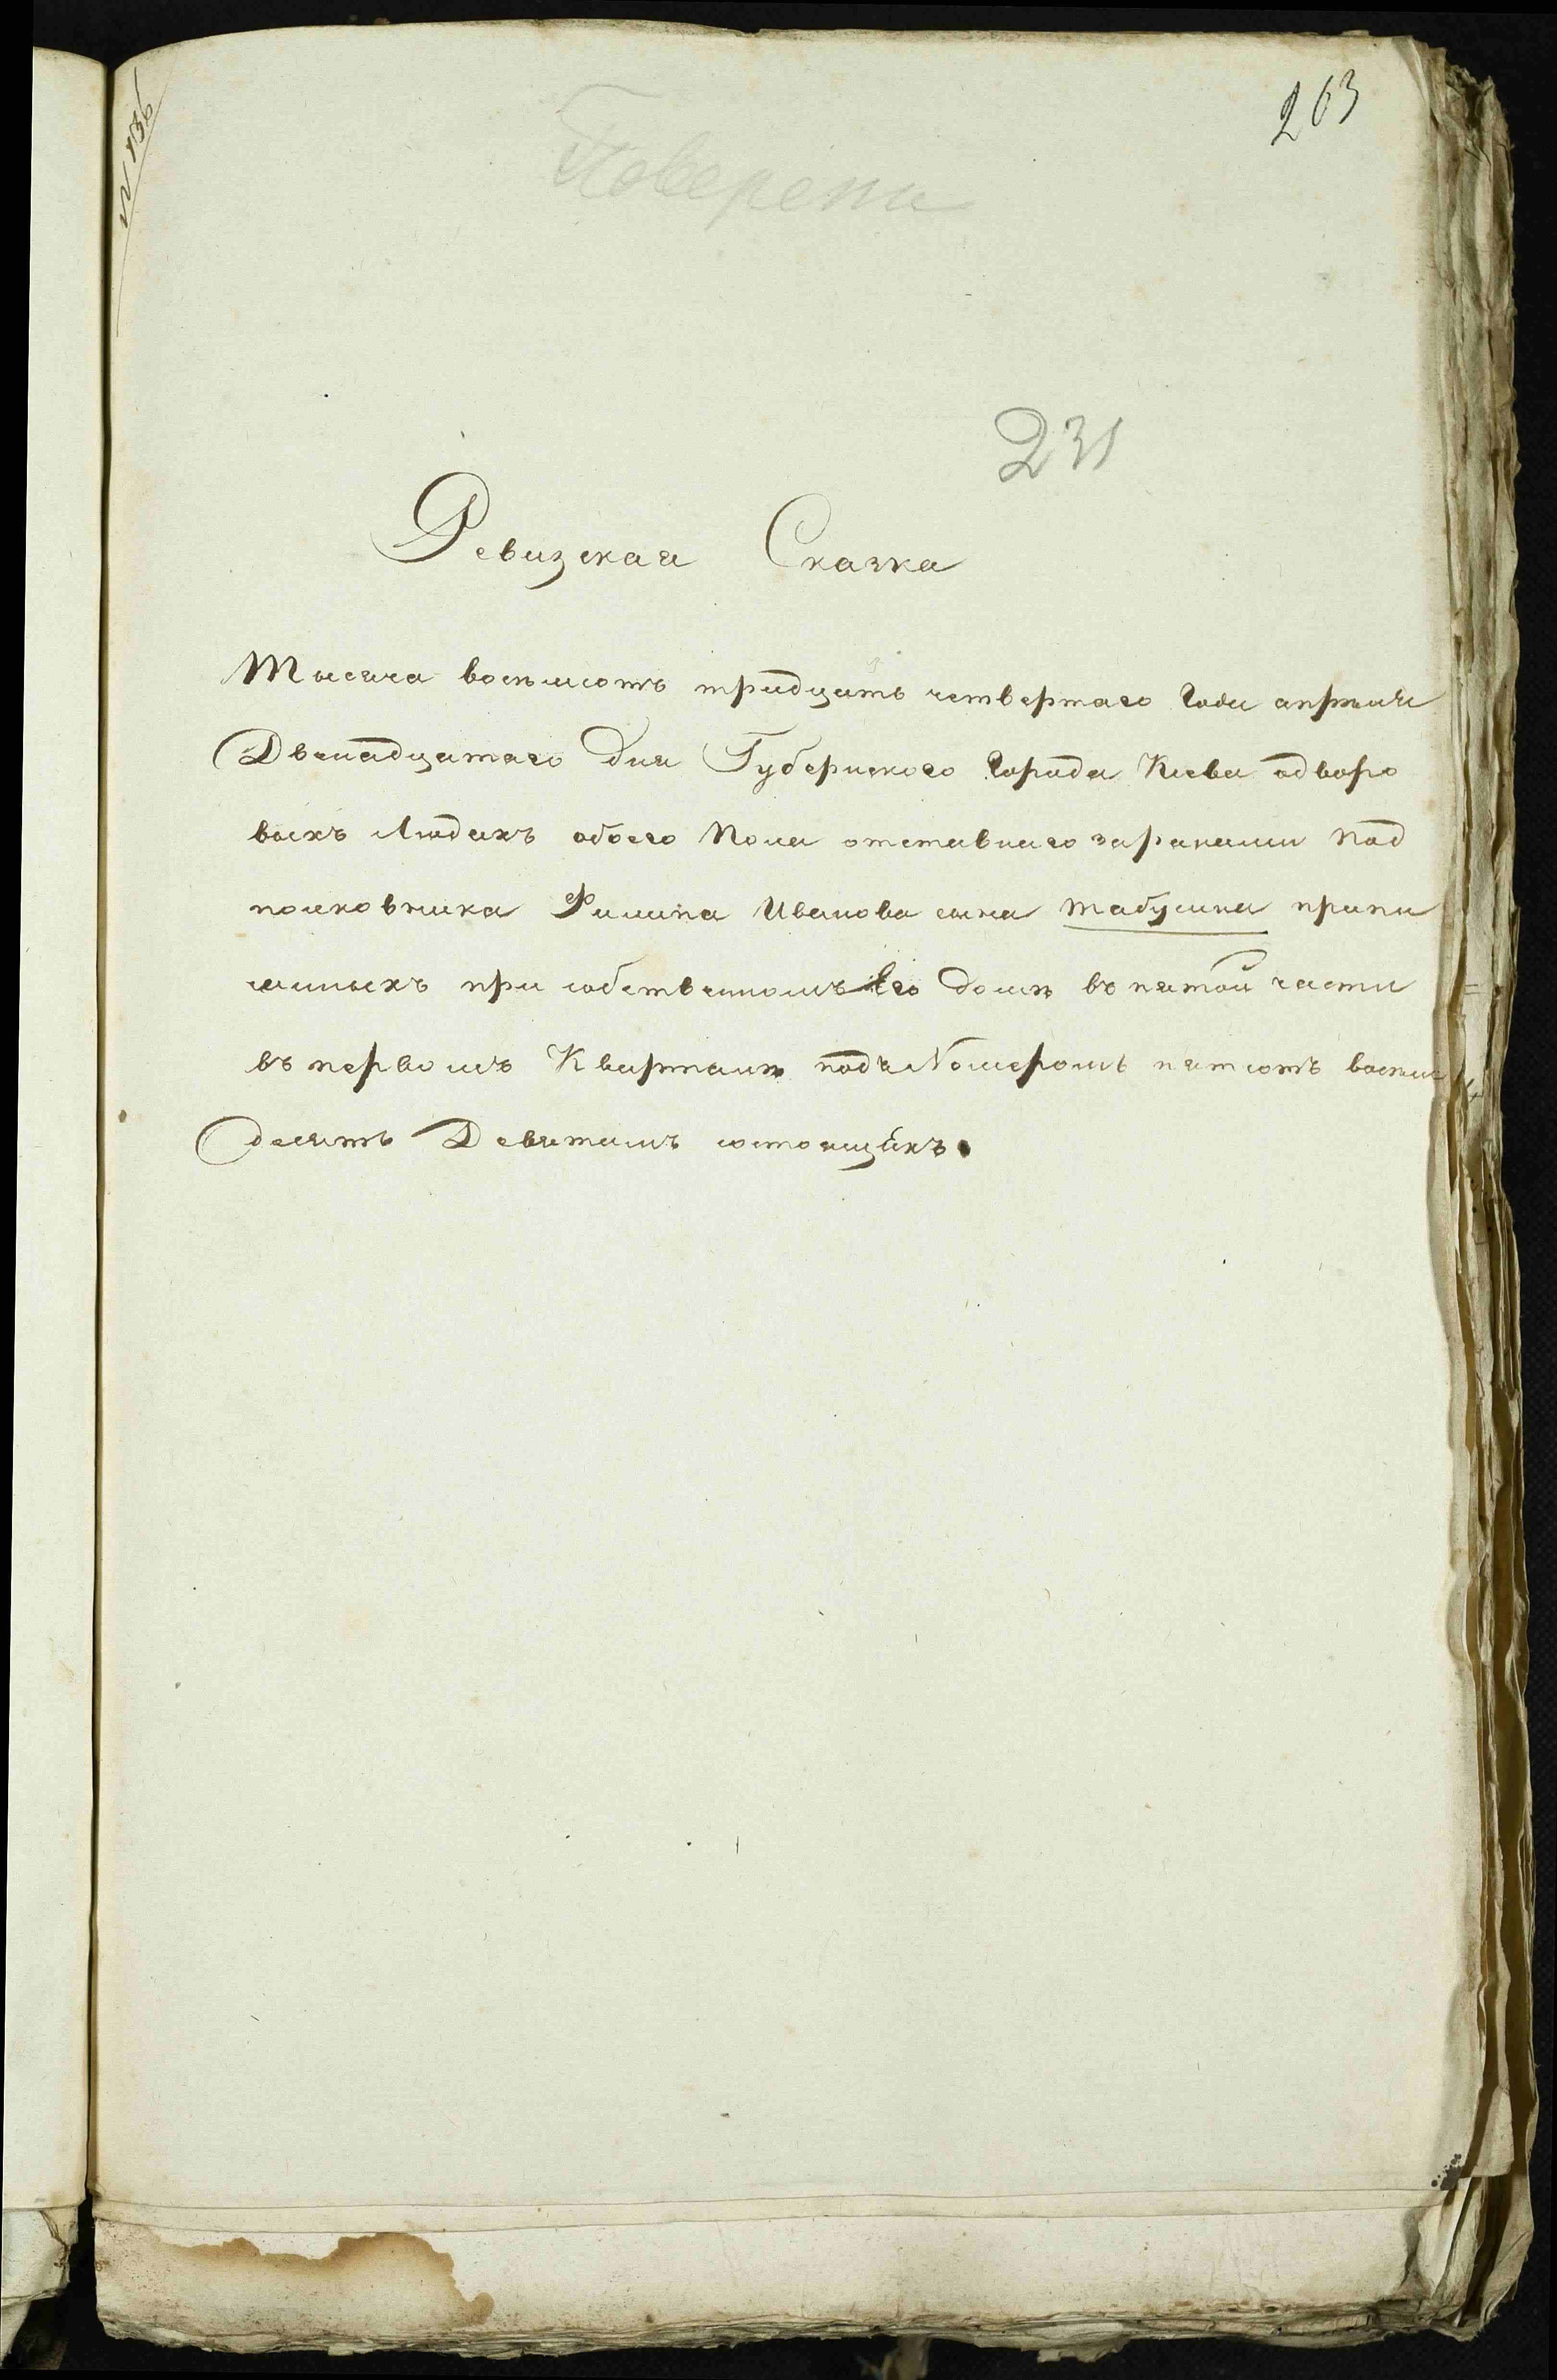 263
Поверена
231
Ревизская Сказка
Тысяча восемьсотъ тридцать четвертаго Года апреля
Двенадцатаго дня Губернскаго Города Киева одворо
выхъ Людяхъ обоего Пола отставнаго заранами Под
полковника Филипа Иванова сына Табулина припи
санныхъ при собственномъ Его доме въ пятой части
въ первомъ Квартале подъ Номеромъ пятсотъ восемь
десятъ Девятымъ состоящихъ.